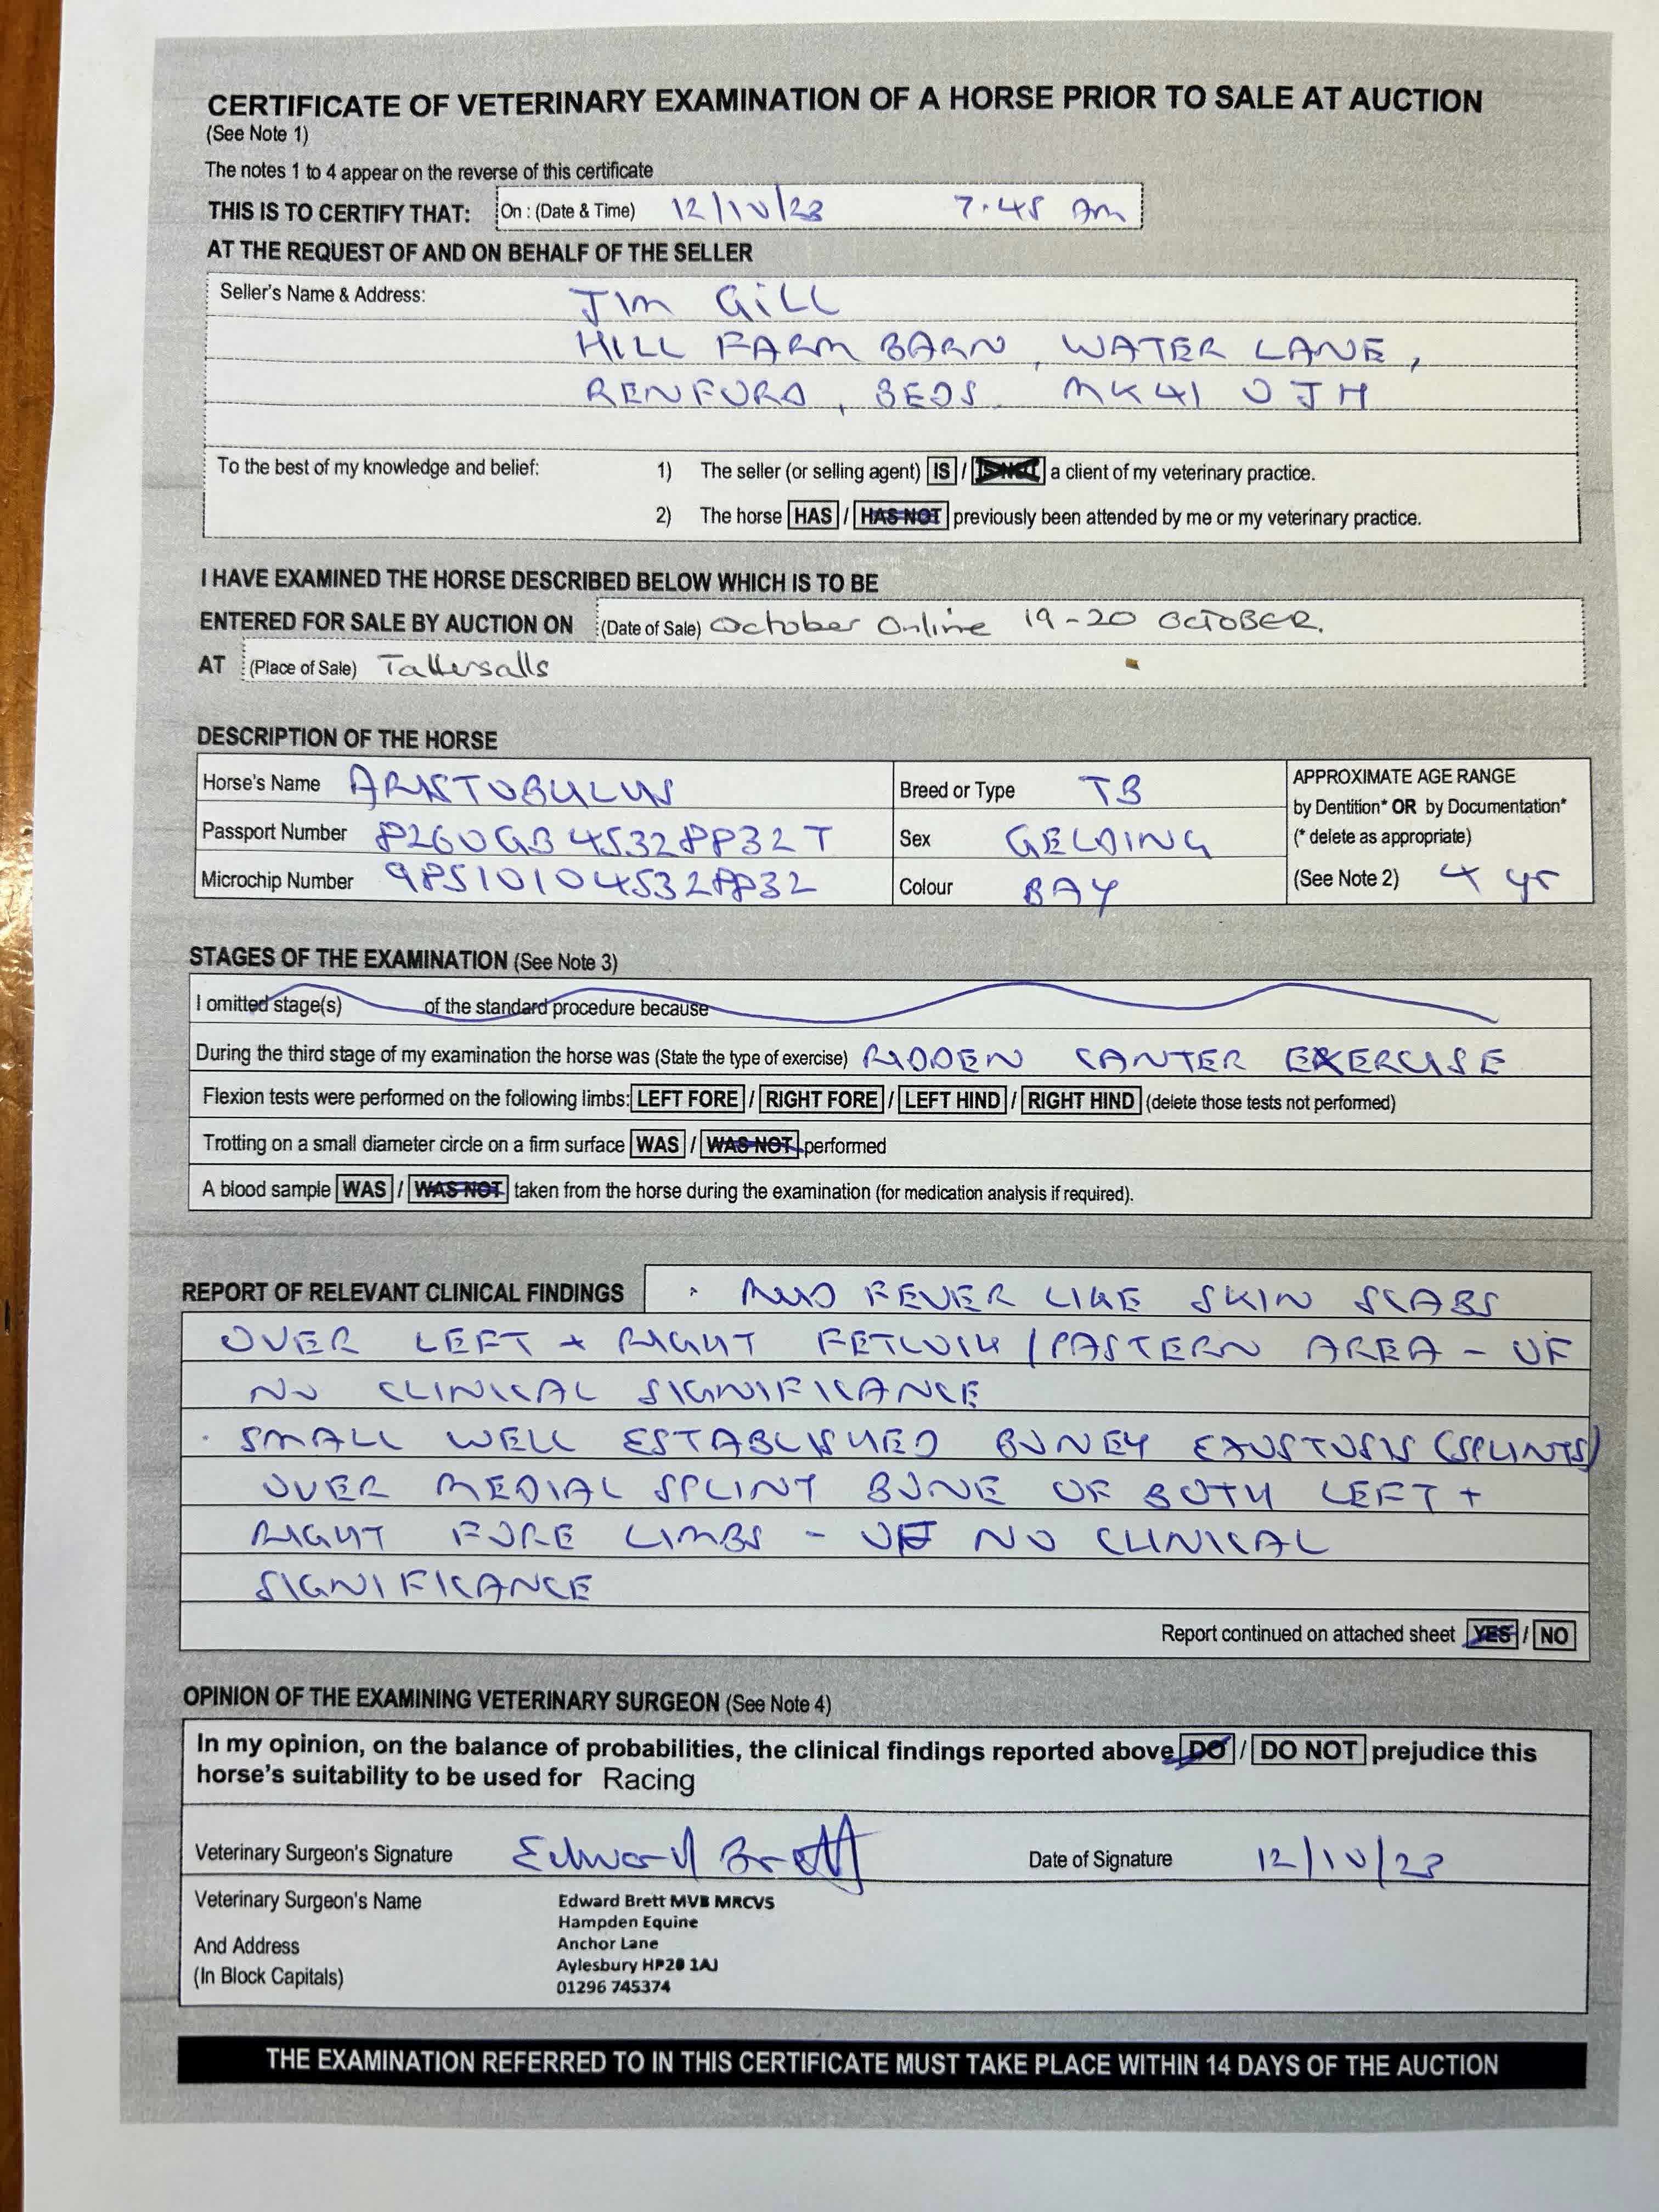 CERTIFICATE OF VETERINARY EXAMINATION OF A HORSE PRIOR TO SALE AT AUCTION
(See Note 1)
The notes 1 to 4 appear on the reverse of this certificate
THIS IS TO CERTIFY THAT: On : (Date & Time) 12/10/23 7.45 am
AT THE REQUEST OF AND ON BEHALF OF THE SELLER
Seller's Name & Address: JIM GILL
HILL FARM BARN, WATER LANE,
BEDS. MK41 0JH
To the best of my knowledge and belief: 1) The seller (or selling agent) IS / IS NOT a client of my veterinary practice.
2) The horse HAS / HAS NOT previously been attended by me or my veterinary practice.
I HAVE EXAMINED THE HORSE DESCRIBED BELOW WHICH IS TO BE
ENTERED FOR SALE BY AUCTION ON (Date of Sale) October Online 19-20 OCTOBER.
AT (Place of Sale) Tattersalls
DESCRIPTION OF THE HORSE
Horse's Name ARISTOBULUS Breed or Type TB APPROXIMATE AGE RANGE
by Dentition* OR by Documentation*
Passport Number 8260GB45328832T Sex GELDING (* delete as appropriate)
Microchip Number 985101045328832 Colour BAY (See Note 2) 4 yr
STAGES OF THE EXAMINATION (See Note 3)
I omitted stage(s) of the standard procedure because
During the third stage of my examination the horse was (State the type of exercise) RIDDEN CANTER EXERCISE
Flexion tests were performed on the following limbs: LEFT FORE / RIGHT FORE / LEFT HIND / RIGHT HIND (delete those tests not performed)
Trotting on a small diameter circle on a firm surface WAS / WAS NOT performed
A blood sample WAS / WAS NOT taken from the horse during the examination (for medication analysis if required).
REPORT OF RELEVANT CLINICAL FINDINGS · MUD FEVER LIKE SKIN SCABS
OVER LEFT + RIGHT FETLOCK / PASTERN AREA - OF
NO CLINICAL SIGNIFICANCE
· SMALL WELL ESTABLISHED BONEY EXOSTOSIS (SPLINTS)
OVER MEDIAL SPLINT BONE OF BOTH LEFT +
RIGHT FORE LIMBS - OF NO CLINICAL
SIGNIFICANCE
Report continued on attached sheet YES / NO
OPINION OF THE EXAMINING VETERINARY SURGEON (See Note 4)
In my opinion, on the balance of probabilities, the clinical findings reported above DO / DO NOT prejudice this
horse's suitability to be used for Racing
Veterinary Surgeon's Signature Edward Brett Date of Signature 12/10/23
Veterinary Surgeon's Name Edward Brett MVB MRCVS
Hampden Equine
And Address Anchor Lane
Aylesbury HP20 1AJ
(In Block Capitals) 01296 745374
THE EXAMINATION REFERRED TO IN THIS CERTIFICATE MUST TAKE PLACE WITHIN 14 DAYS OF THE AUCTION